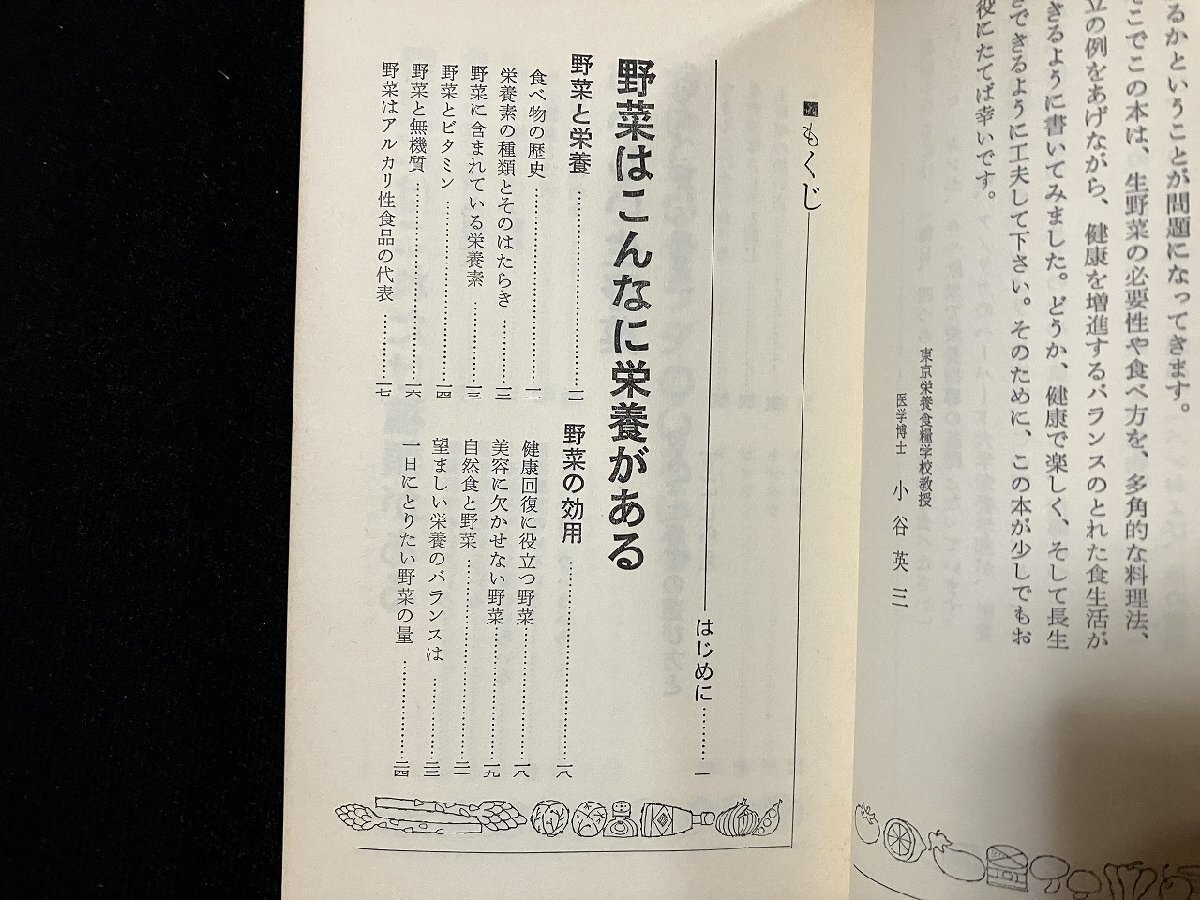 るかということが問題になってきます。
そこでこの本は、生野菜の必要性や食べ方を、多角的な料理法、
立の例をあげながら、健康を増進するバランスのとれた食生活が
きるように書いてみました。どうか、健康で楽しく、そして長生
きできるように工夫して下さい。そのために、この本が少しでもお
役にたてば幸いです。
東京栄養食糧学校教授
医学博士 小谷英三
もくじ
はじめに………一
野菜はこんなに栄養がある
野菜と栄養………
食べ物の歴史………
栄養素の種類とそのはたらき………
野菜に含まれている栄養素………一三
野菜とビタミン………一四
野菜と無機質………一六
野菜はアルカリ性食品の代表………一七
野菜の効用………一八
健康回復に役立つ野菜………一八
美容に欠かせない野菜………一九
自然食と野菜………
望ましい栄養のバランスは………二三
一日にとりたい野菜の量………二四